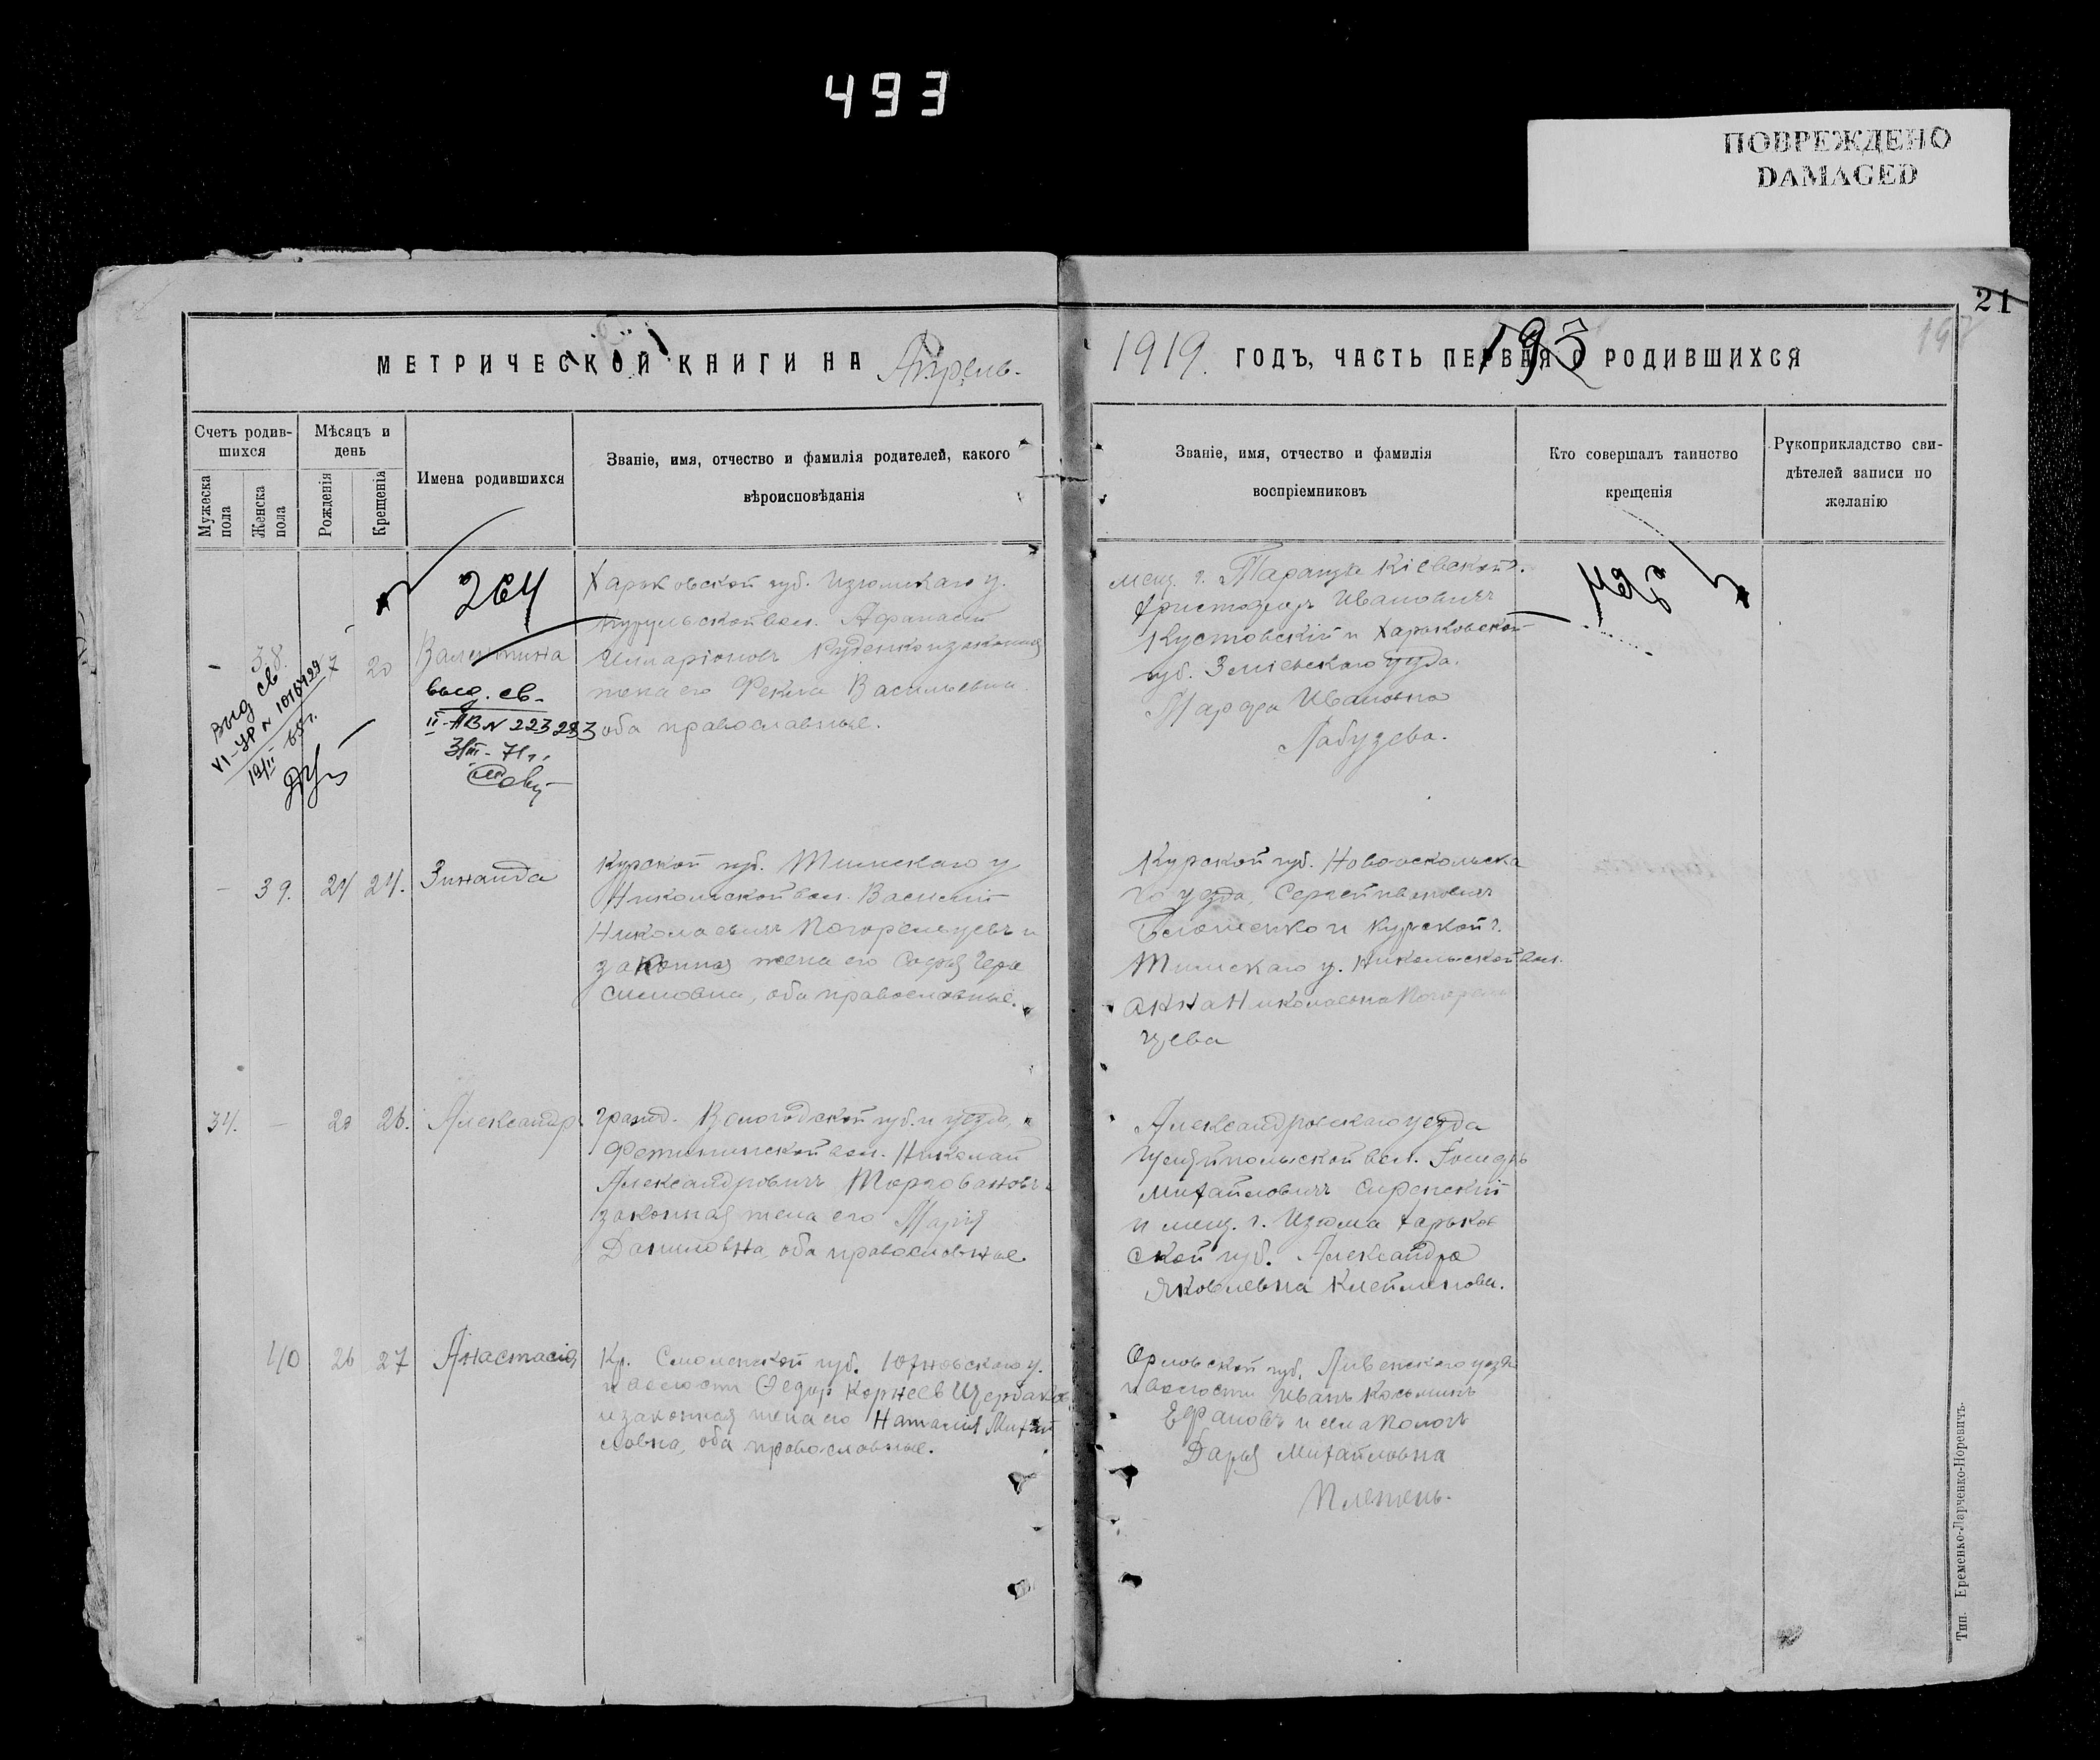 493
ПОВРЕЖДЕНО
DAMAGED
21
193
МЕТРИЧЕСКОЙ КНИГИ НА Апрель.
1919. ГОДЪ, ЧАСТЬ ПЕРВАЯ О РОДИВШИХСЯ
Счетъ родив-
шихся
Мужеска
пола
Женска
пола
Мѣсяцъ и
день
Рожденія
Крещенія
Имена родившихся
Званіе, имя, отчество и фамилія родителей, какого
вѣроисповѣданія
Званіе, имя, отчество и фамилія
воспріемниковъ
Кто совершалъ таинство
крещенія
Рукоприкладство сви-
дѣтелей записи по
желанію
264
- 38. 7 20 Валентина
выд. св.
VI-УР N 1016429
19/II 65г.
выд. св.
II-ПВ N 223293
3/III-71г.
Харьковской губ. Изюмскаго у.
вол. Афанасій
Илларіоновъ Руденко и законная
жена его Фекла Васильевна
оба православные.
мещ. г. Таращи Кіевской г.
Христофоръ Ивановичъ
Кустовскій и Харьковской
губ. Зміевскаго уезда.
Марфа Ивановна
Лабузева.
- 39. 24 24. Зинаида
Курской губ. Тимскаго у
Никольской вол. Василий
Николаевичъ Погорельцевъ и
законная жена его Софья Гера
симовна, оба православные.
Курской губ. Новооскольска
го уезда, Сергей Ивановичъ
и Курской г.
Тимскаго у. Никольской вол.
Анна Николаевна Погорель
цева
34. - 20 26. Александр.
гражд. Вологодской губ. и уезда,
Фетининской вол. Николай
Александровичъ Торговановъ и
законная жена его Марія
Даниловна, оба православные
Александровскаго уезда
вол.
Михайловичъ Сиренский
и мещ. г. Изюма Харьков
ской губ. Александра
Яковлевна Клейменова.
40 26 27 Анастасія
Кр. Смоленской губ. Юхновскаго у.
и волости Федор Корнеев Щербаков
и законная жена его Наталия Михай
ловна, оба православные.
Орловской губ. Ливенского уезда
и волости Иванъ Косьминъ
и
Дарья Михайловна
Плетень.
Тип. Еременко-Ларченко-Норевичъ.